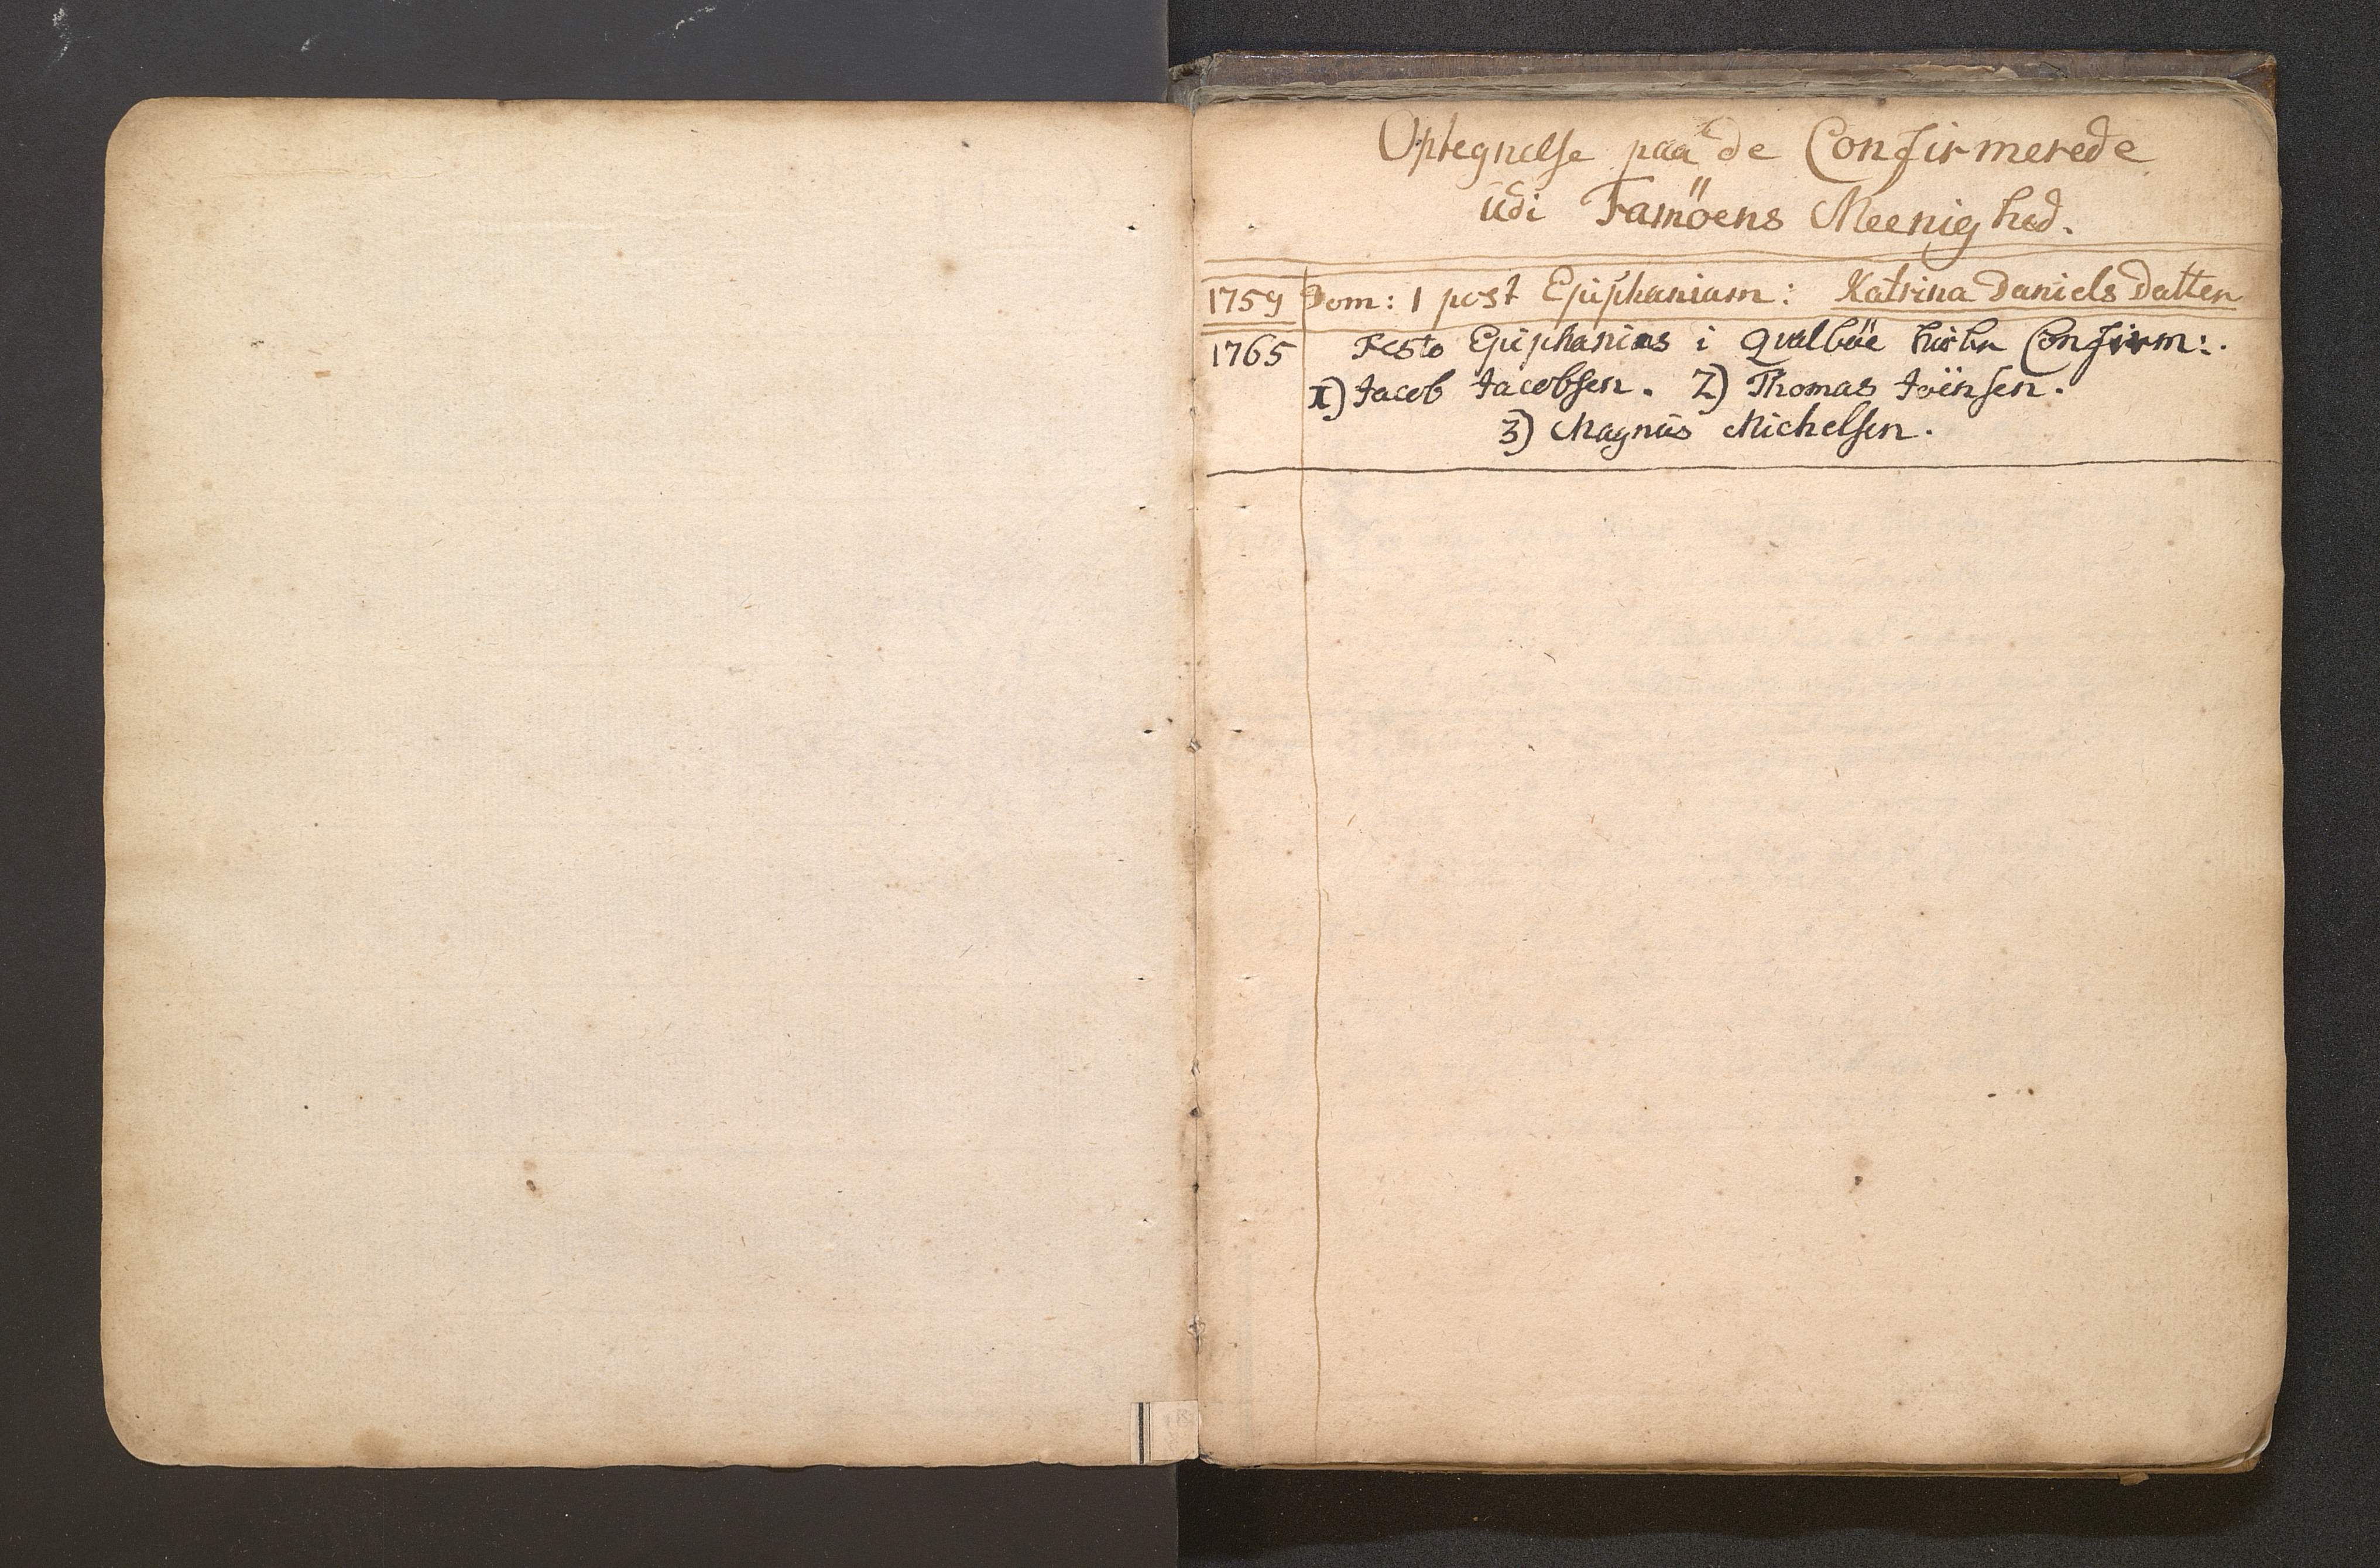 Optegnelse paa de Confirmerede
udi Famöens Meenighed.
1759 Dom: 1 post Epiphaniam: Katrina Daniels Datter
1765 Festo Epiphanias i Qvalböe Kirke Confirm:.
1) Jacob Jacobsen. 2) Thomas Joensen.
3) Magnus Michelsen.